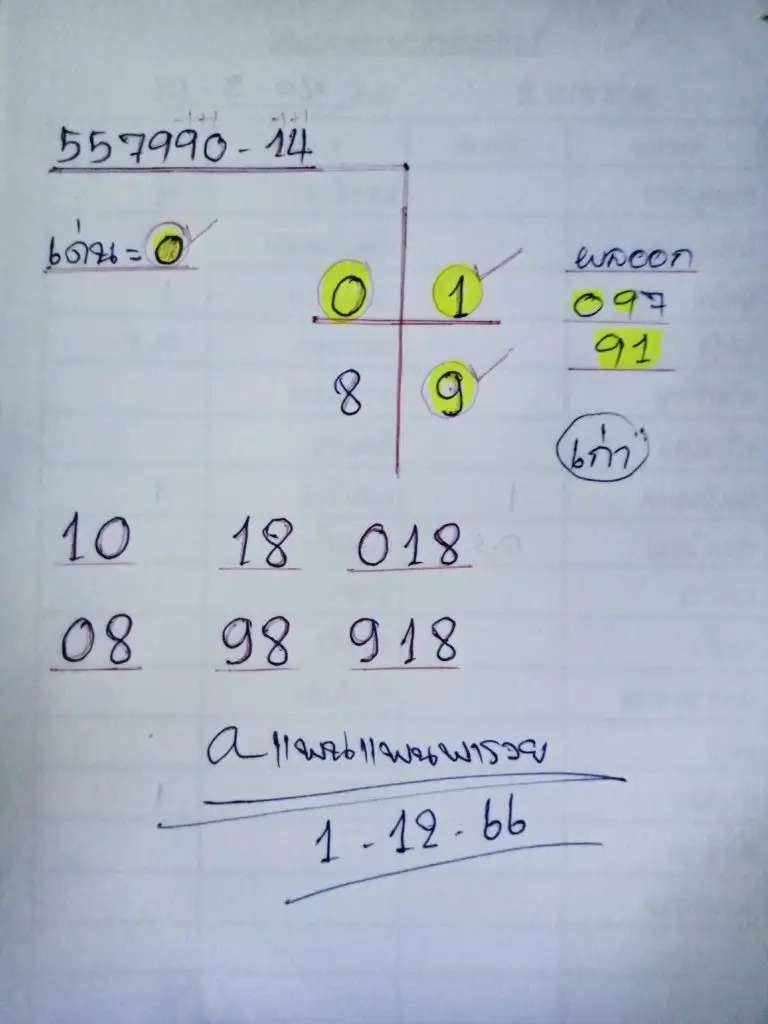 -1+1 -1+1
557990-14
เด่น = 0
0 1
8 9
ผลออก
097
91
เก่า
10 18 018
08 98 918
a แพนแพนพารวย
1-12-66